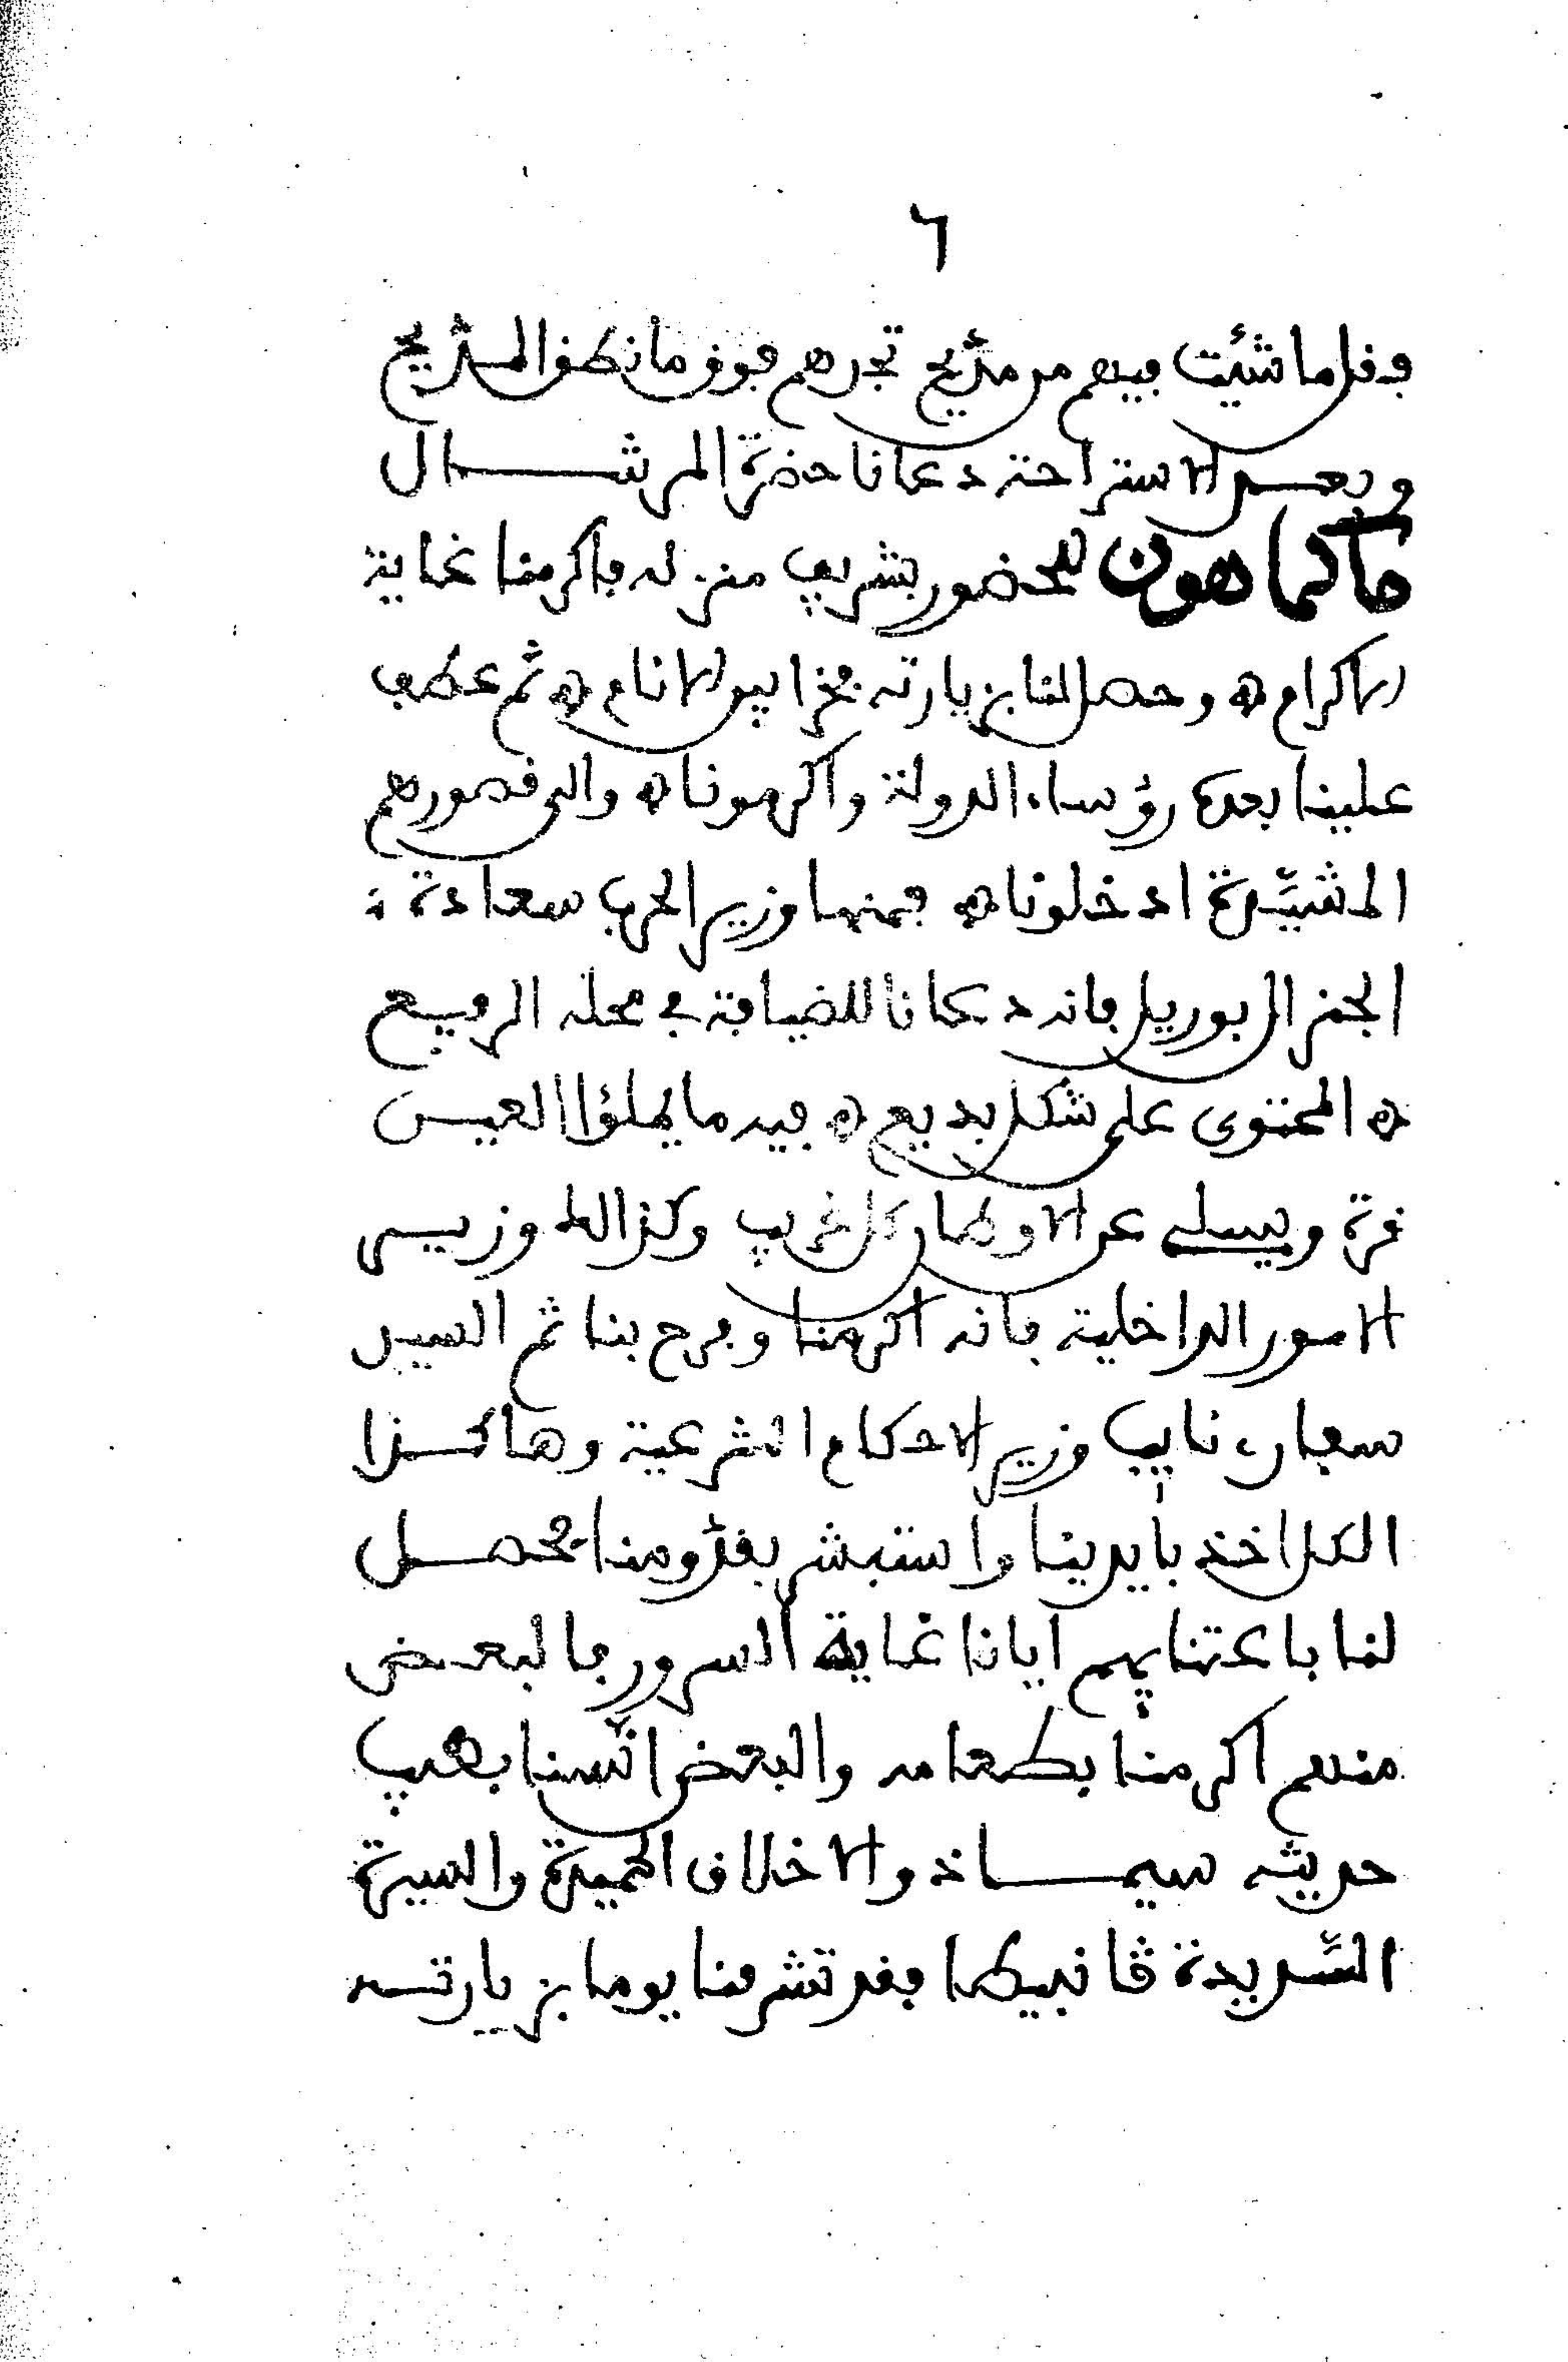 ٦
فقل ما شئت فيهم من مديح تجدهم فوق ما نطق المديح
وبعد الاستراحة دعانا حضرة المرشال
ماكماهون للحضور بشريف منزله فاكرمنا غاية
الاكرام ه وحصل لنا بزيارته فخرا بين الانام ه ثم عطف
علينا بعده رؤساء الدولة واكرمونا ه والى قصورهم
المشيّدة ادخلونا ه فمنها وزير الحرب سعادة :
الجنرال بوريل فانه دعانا للضيافة في محله الرفيع
ه المحتوى على شكل بديع ه فيه ما يملؤا العين
قرة ويسلي عن الاوطار كل غريب وكذالك وزير
الامور الداخلية فانه اكرمنا وفرح بنا ثم السيد
نايب وزير الاحكام الشرعية وهاكذا
الكل اخذ بايدينا واستبشر بقدومنا فحصل
لنا باعتنايهم ايانا غاية السرور فالبعض
منهم اكرمنا بطعامه والبعض انّسنا بطيب
حديثه سيما ذو الاخلاق الحميدة والسيرة
السّديدة ڤانبيطا فقد تشرفنا يوما بزيارته